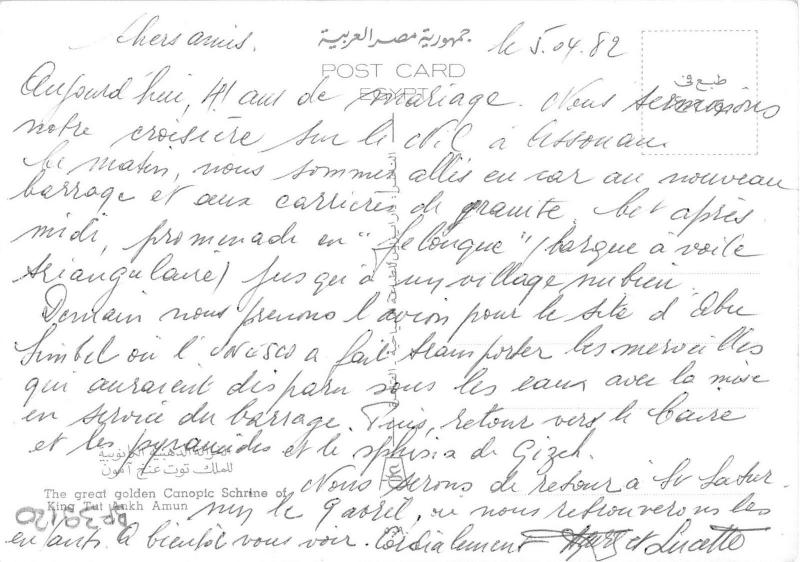 Chers amis.
جمهورية مصر العربية
le 5.04.82
POST CARD
EGYPT
طبع في
Aujourd'hui, 41 ans de mariage. Nous terminons
notre croisière sur le Nil à Assouan.
Ce matin, nous sommes allés en car au nouveau
barrage et aux carrières de granite. Cet après
midi, promenade en "felouque" (barque à voile
triangulaire) jusqu'à un village nubien.
Demain nous prenons l'avion pour le site d'Abu
Simbel où l'Unesco a fait transporter les merveilles
qui auraient disparu sous les eaux avec la mise
en service du barrage. Puis, retour vers le Caire
et les pyramides et le sphinx de Gizeh.
الذهبية الكانوبية
للملك توت عنخ آمون
The great golden Canopic Schrine of
King Tut Ankh Amun
Nous serons de retour à St Satur-
nin le 9 avril, où nous retrouverons les
enfants. A bientôt vous voir. Cordialement
et Lucette